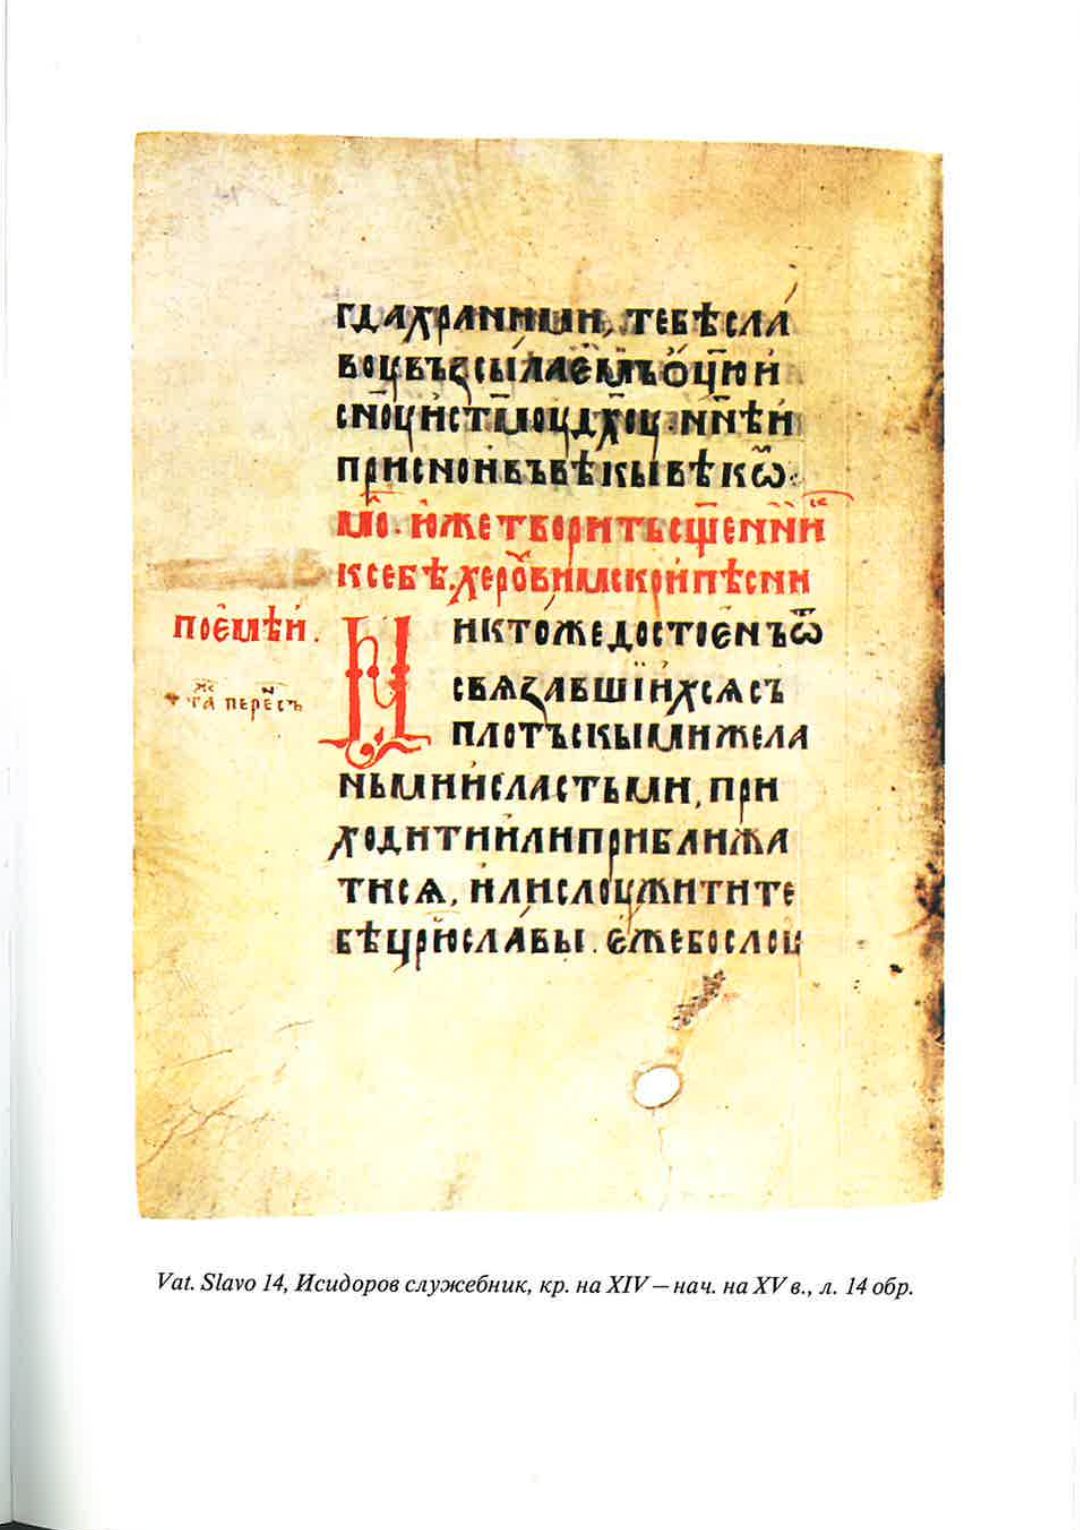 гдахраними, тебѣсла
воꙋвъꙁсылаемъѻц҃юи
сн҃оꙋистм҃оꙋдх҃оꙋ.нн҃ѣи
присноивъвѣкывѣкѡ
мо. юже творитьсщ҃енни
ксебѣ. херꙋвимскоипѣсни
поемѣи.
никтожедостоенъѿ
свѧꙁавшїихсѧсъ
плотьскымижела
ньмиисластьми, при
ходитиилиприближа
тисѧ, илислоужитите
бѣцр҃юславы. ежебослоу
Vat. Slavo 14, Исидоров служебник, кр. на XIV — нач. на XV в., л. 14 обр.